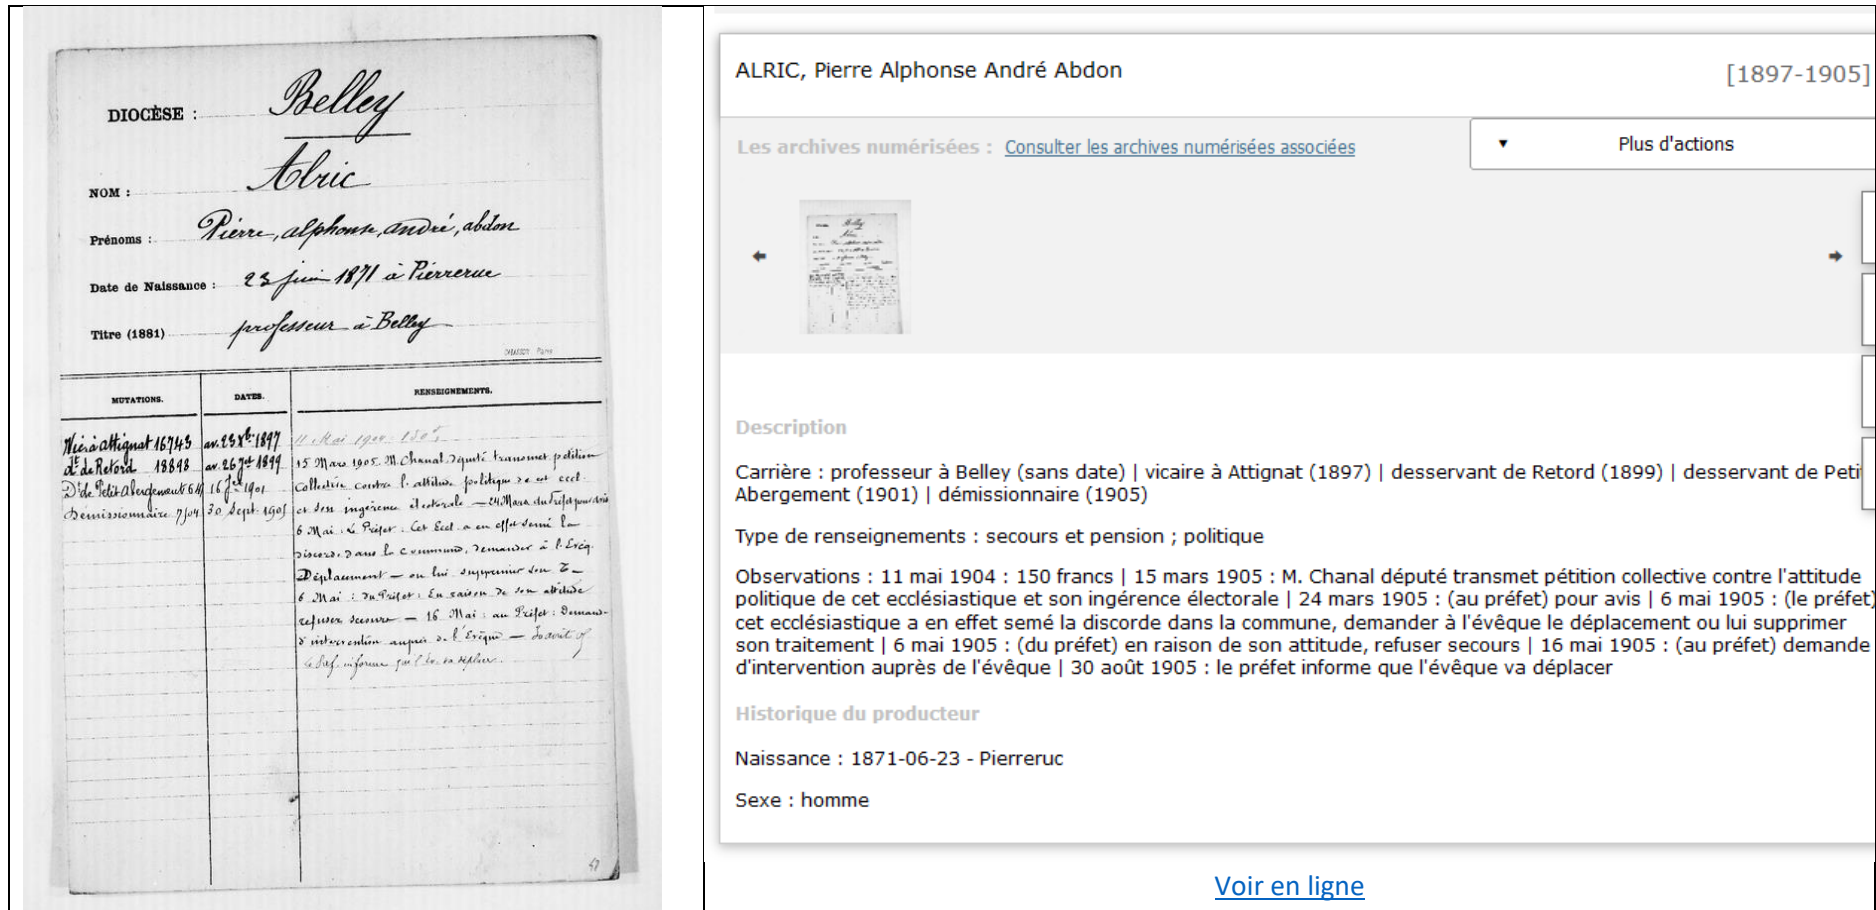 DIOCÈSE : Belley
NOM : Alric
Prénoms : Pierre, alphonse, andré, abdon
Date de Naissance : 23 juin 1871 à Pierrerue
Titre (1881) professeur à Belley
MUTATIONS. DATES. RENSEIGNEMENTS.
Vic. à Attignat 16743 av. 23 Xbre 1897 11 Mai 1904 : 150 f
dt de Retord 18898 av. 26 Jet 1899 15 Mars 1905. M. Chanal député transmet pétition
Dt de Petit Abergement 16 Jet 1901 Collective contre l'attitude politique de cet eccl.
Démissionnaire 7504 30 Sept. 1905 et son ingérence électorale — 24 Mars du Préfet pour avis
6 Mai : Le Préfet : Cet Eccl. a en effet semé la
discorde dans la commune, demander à l'Evêq.
Déplacement — ou lui supprimer son T —
6 Mai : du Préfet : En raison de son attitude
refuser secours — 16 Mai : au Préfet : Demande
d'intervention auprès de l'Evêque — 30 août 05
le Préf. informe que l'Ev. va déplacer.
ALRIC, Pierre Alphonse André Abdon
[1897-1905]
Les archives numérisées : Consulter les archives numérisées associées
Plus d'actions
Description
Carrière : professeur à Belley (sans date) | vicaire à Attignat (1897) | desservant de Retord (1899) | desservant de Peti
Abergement (1901) | démissionnaire (1905)
Type de renseignements : secours et pension ; politique
Observations : 11 mai 1904 : 150 francs | 15 mars 1905 : M. Chanal député transmet pétition collective contre l'attitude
politique de cet ecclésiastique et son ingérence électorale | 24 mars 1905 : (au préfet) pour avis | 6 mai 1905 : (le préfet)
cet ecclésiastique a en effet semé la discorde dans la commune, demander à l'évêque le déplacement ou lui supprimer
son traitement | 6 mai 1905 : (du préfet) en raison de son attitude, refuser secours | 16 mai 1905 : (au préfet) demande
d'intervention auprès de l'évêque | 30 août 1905 : le préfet informe que l'évêque va déplacer
Historique du producteur
Naissance : 1871-06-23 - Pierreruc
Sexe : homme
Voir en ligne